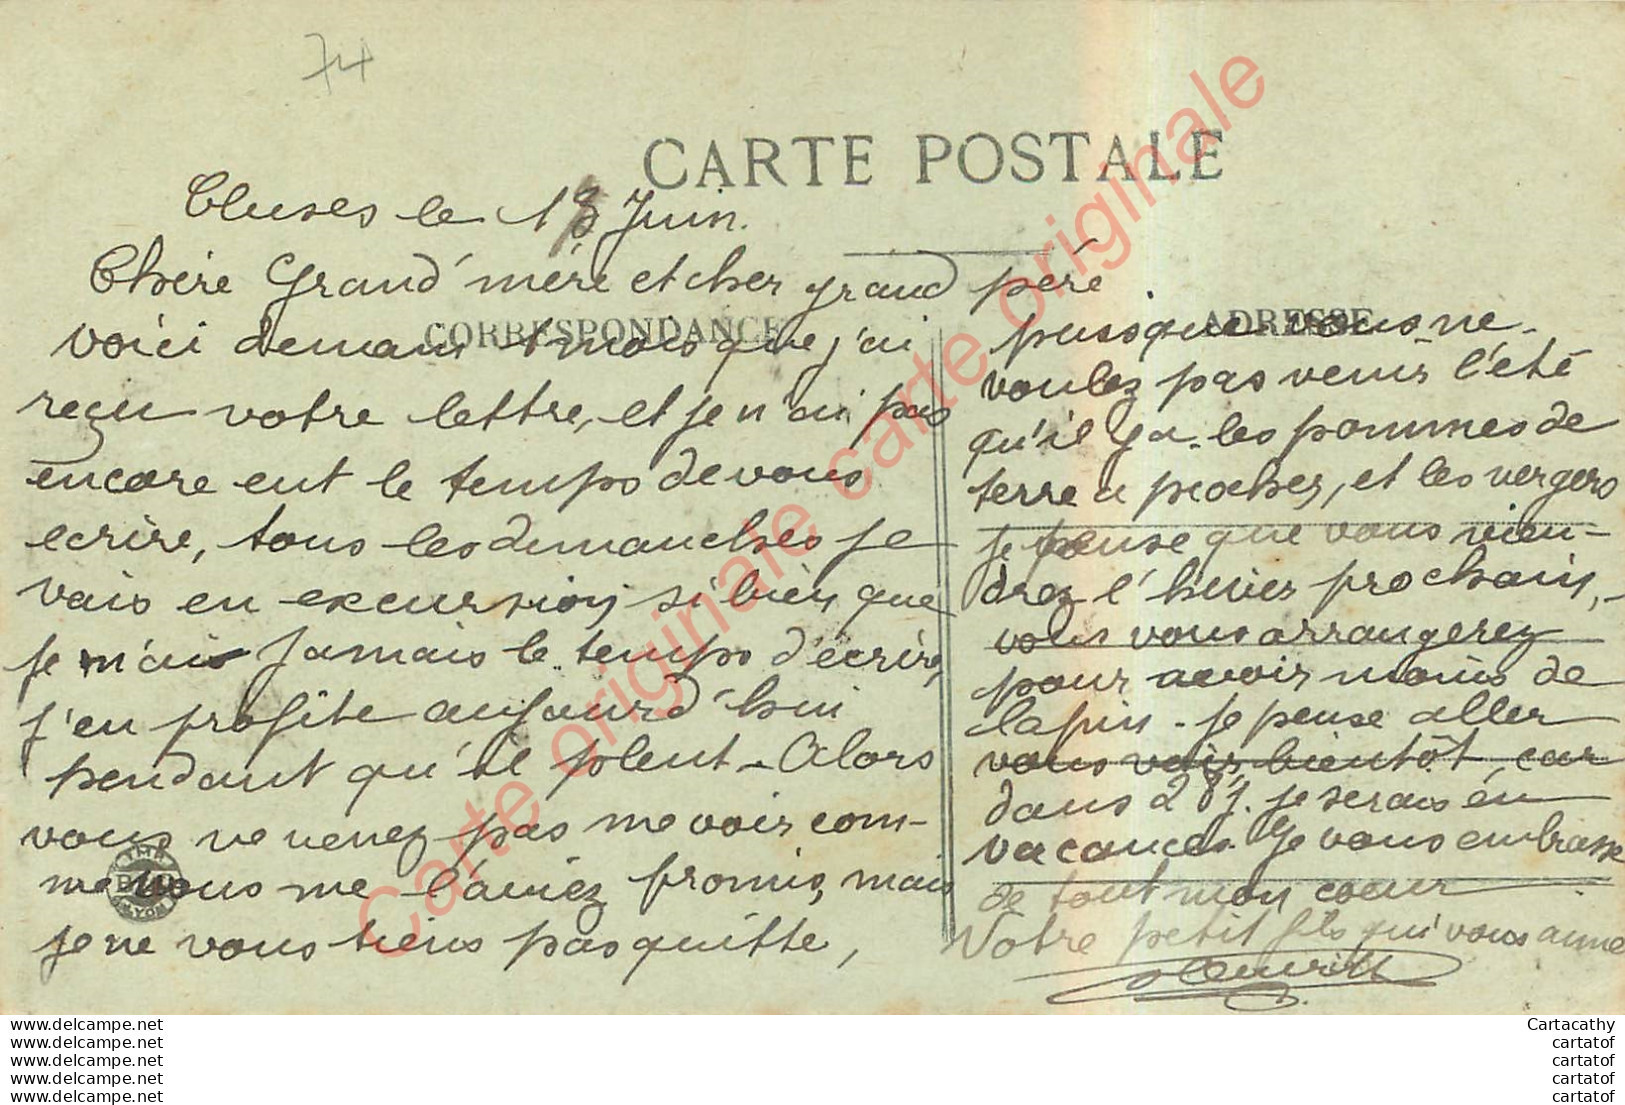 74
CARTE POSTALE
Cluses le 18 Juin.
Chère Grand'mère et cher grand père
CORRESPONDANCE
ADRESSE
voici demain 1 mois que j'ai
reçu votre lettre, et je n'ai pas
encore eut le temps de vous
ecrire, tous les dimanches je
vais en excursion, si bien que
je n'ai jamais le temps d'écrire,
j'en profite aujourd'hui
pendant qu'il pleut - Alors
vous ne venez pas me voir com-
me vous me l'aviez promis, mais
je ne vous tiens pas quitte,
puisque vous ne
voulez pas venir l'été
qu'il y a les pommes de
terre a piocher, et les vergers
je pense que vous vien-
drez l'hiver prochain,
vous vous arrangerez
pour avoir moins de
lapin - Je pense aller
vous voir bientôt, car
dans 28 j. je serais en
vacances. Je vous embrasse
de tout mon coeur
Votre petit fils qui vous aime
Carte originale carte originale
www.delcampe.net
www.delcampe.net
www.delcampe.net
www.delcampe.net
www.delcampe.net
Cartacathy
cartatof
cartatof
cartatof
cartatof